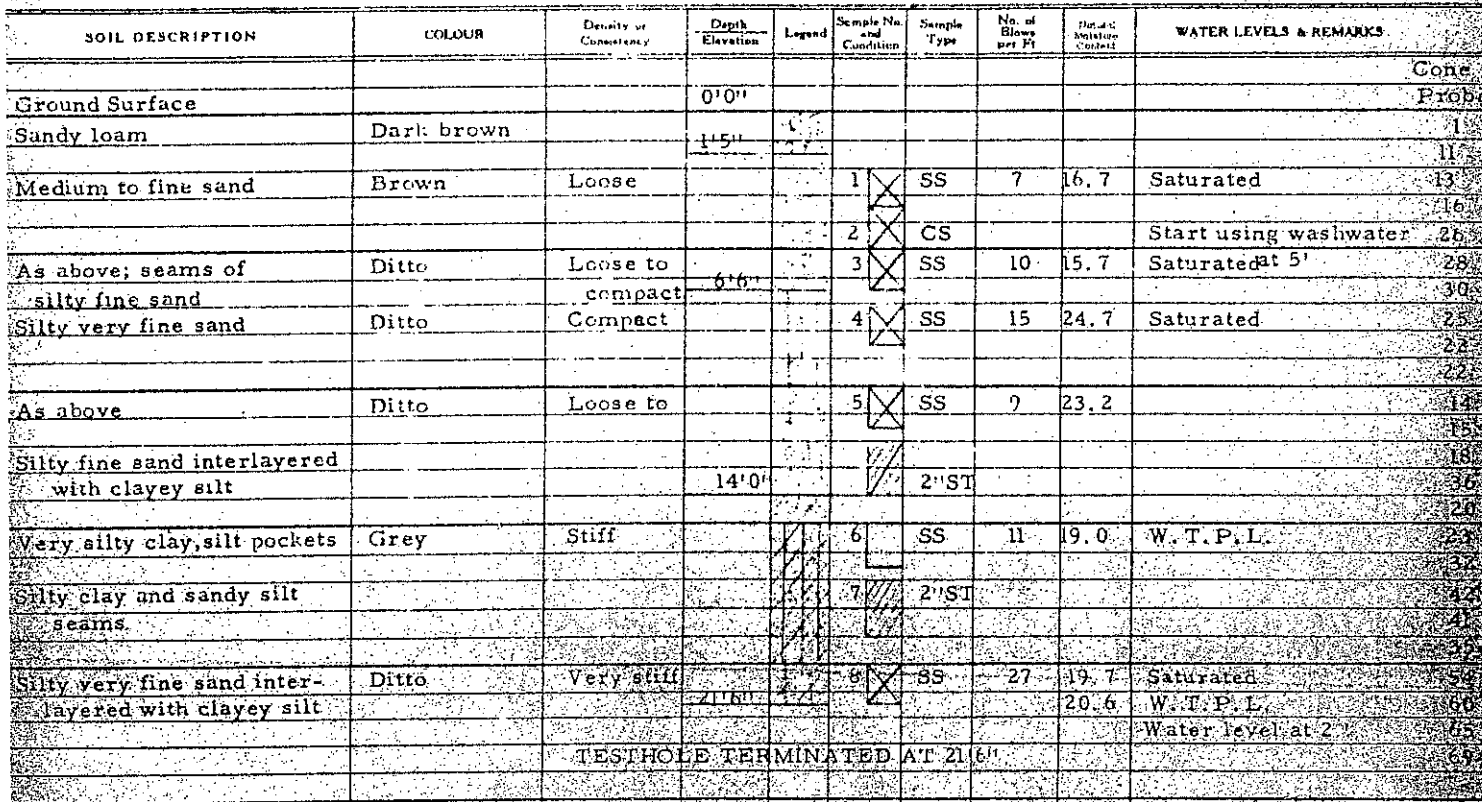 SOIL DESCRIPTION COLOUR Density or Consistency Depth Elevation Legend Sample No. and Condition Sample Type No. of Blows per Ft Natural Moisture Content WATER LEVELS & REMARKS
Cone
Ground Surface 0'0" Probe
Sandy loam Dark brown 1
1'5" 11
Medium to fine sand Brown Loose 1 SS 7 16.7 Saturated 13
16
2 CS Start using washwater 26
As above; seams of Ditto Loose to 3 SS 10 15.7 Saturated at 5' 28
silty fine sand compact 6'6" 30
Silty very fine sand Ditto Compact 4 SS 15 24.7 Saturated 25
22
22
As above Ditto Loose to 5 SS 9 23.2 14
15
Silty fine sand interlayered 18
with clayey silt 14'0" 2"ST 36
20
Very silty clay, silt pockets Grey Stiff 6 SS 11 19.0 W.T.P.L. 23
32
Silty clay and sandy silt 7 2"ST 42
seams. 41
Silty very fine sand inter- Ditto Very stiff 8 SS 27 19.7 Saturated 54
layered with clayey silt 21'6" 20.6 W.T.P.L. 60
Water level at 2'
TESTHOLE TERMINATED AT 21'6"